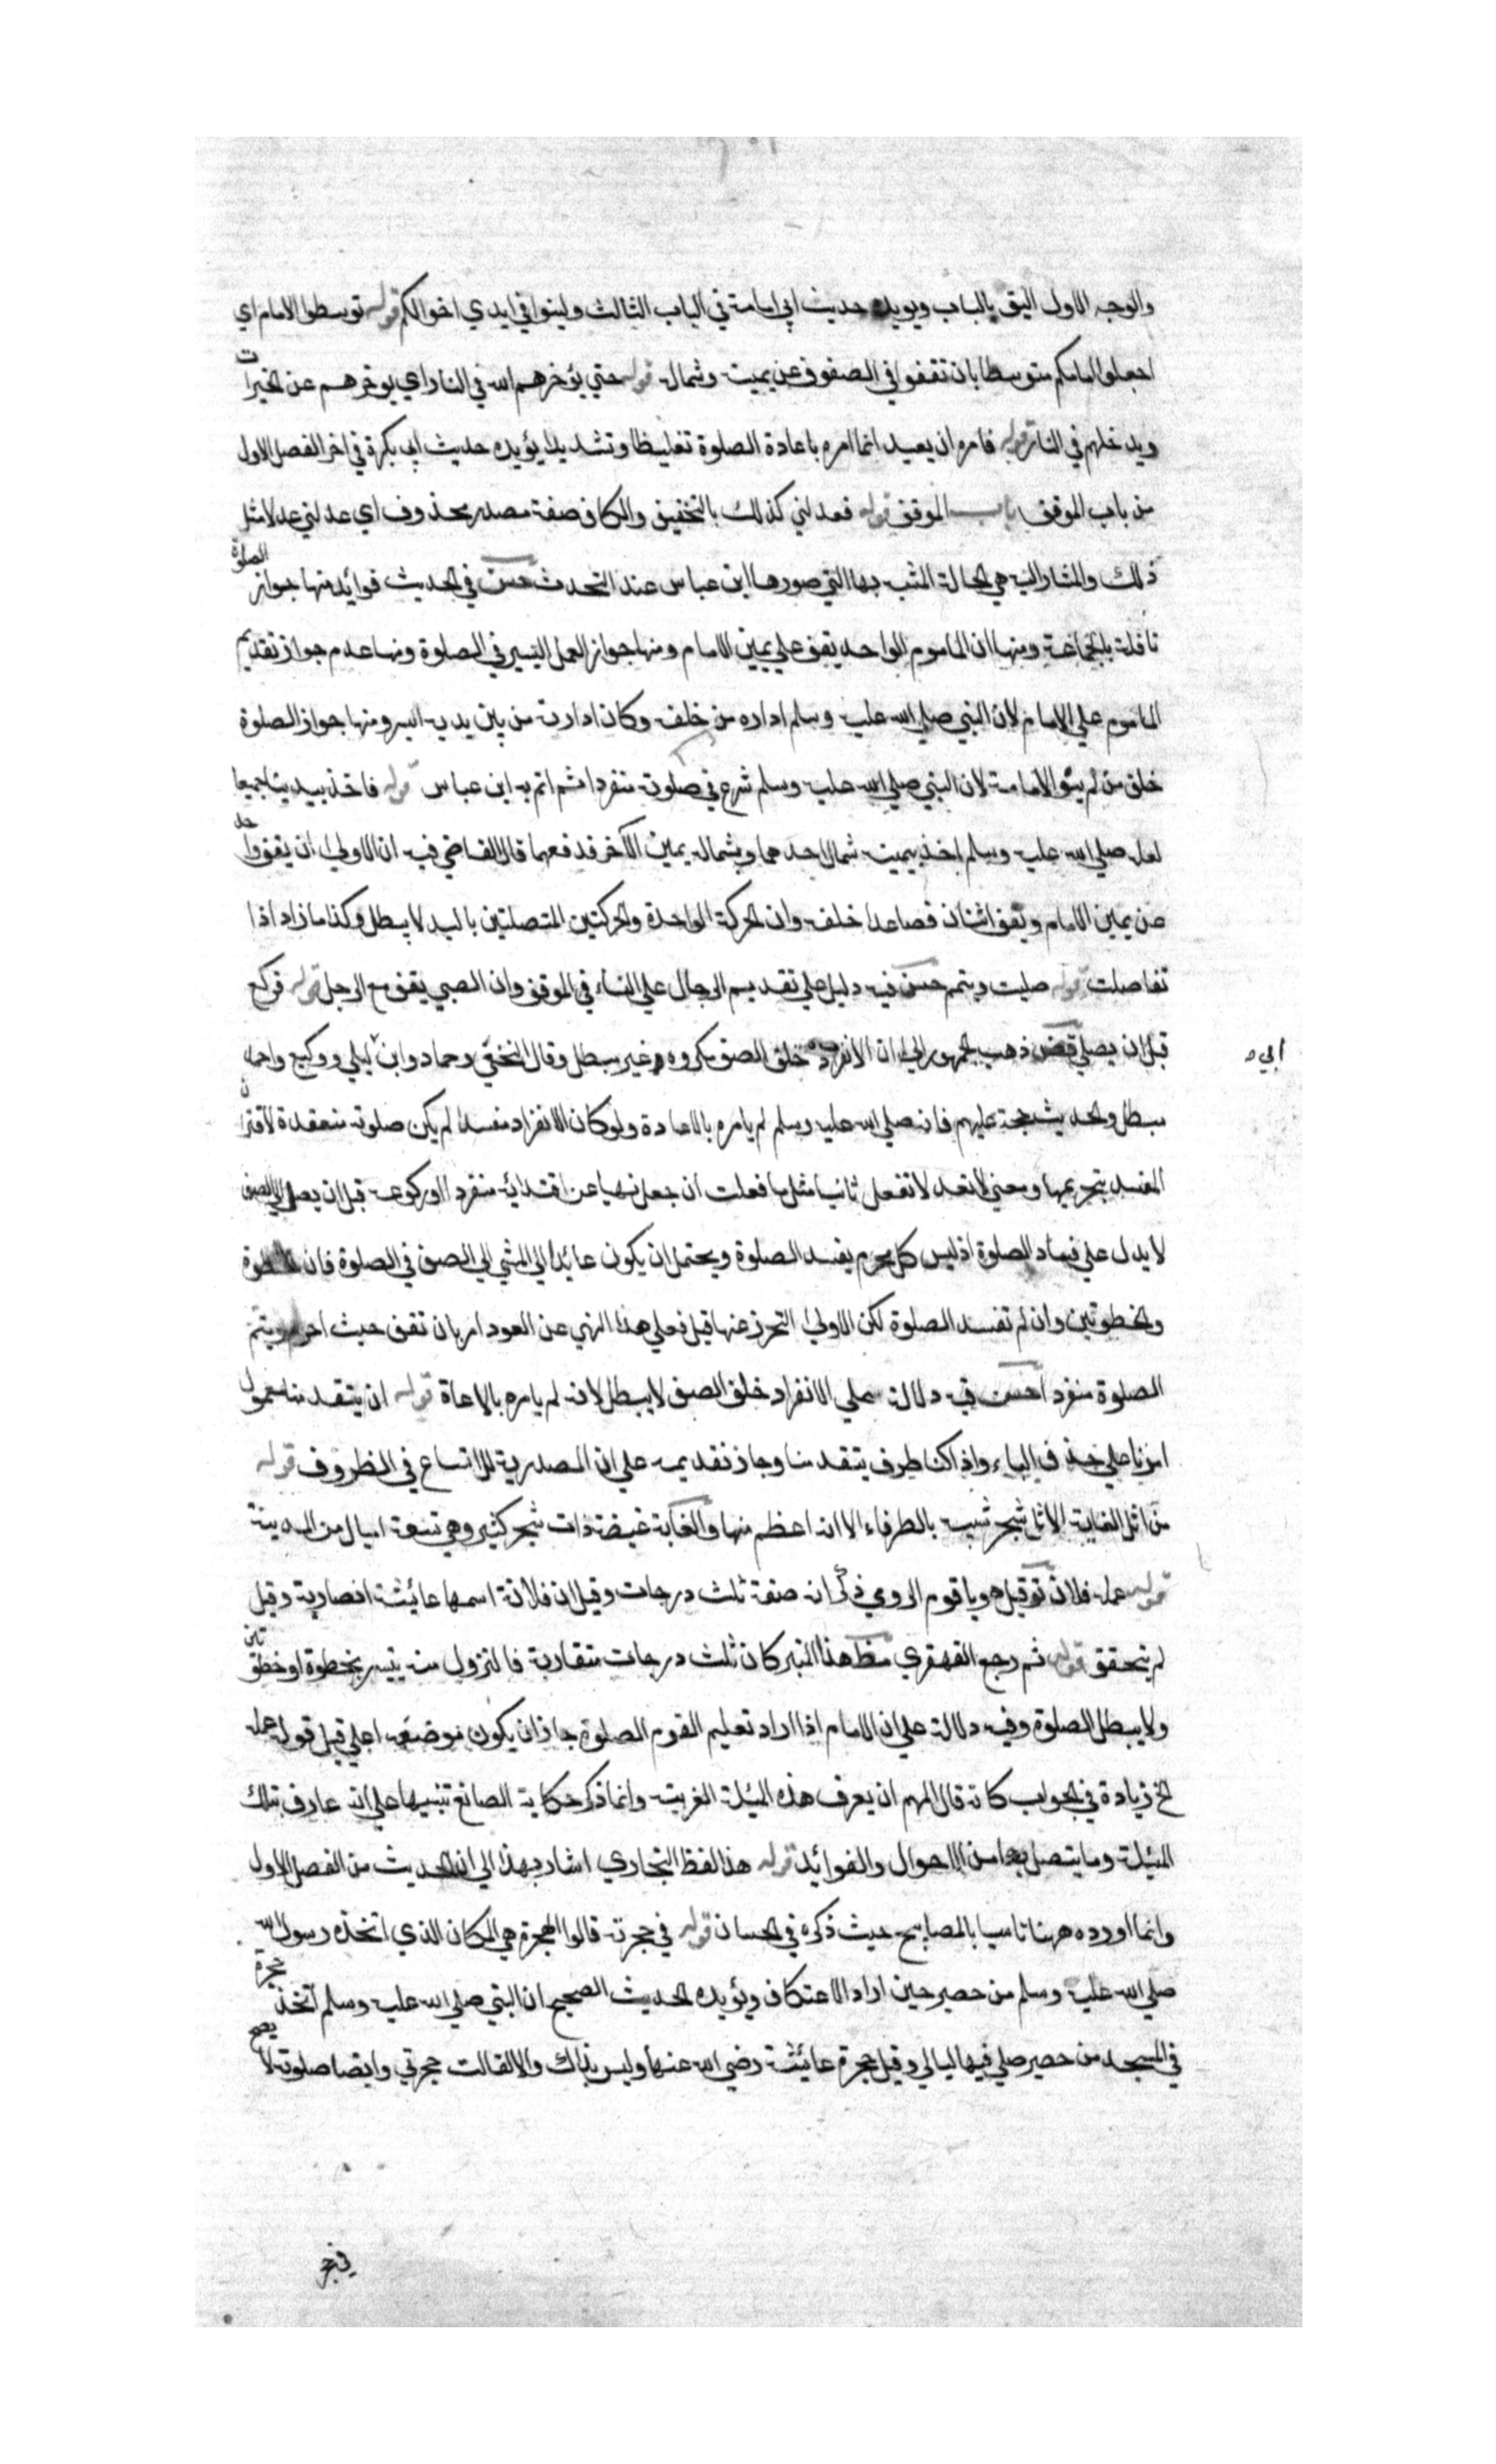 والوجه الاول اليق بالباب ويويده حديث ابي امامة في الباب الثالث ولينوا في ايدي اخوانكم قوله توسطوا الامام اي
اجعلوا امامكم متوسطا بان تقفوا في الصفوف عن يمينه وشماله قوله حتي يؤخرهم الله في النار اي يوخرهم عن الخيرات
ويدخلهم في النار قوله فامره ان يعيد انما امره باعادة الصلوة تغليظا وتشديدا يؤيده حديث ابي بكرة في اخر الفصل الاول
من باب الموقف باب الموقف قوله فعدلني كذلك بالتخفيف والكاف صفة مصدر محذوف اي عدلني عدلا مثل
ذلك والمشار اليه هي الحالة المشبه بها التي صورها ابن عباس عند التحدث حسن في الحديث فوائد منها جواز الصلوة
نافلة بالجماعة ومنها ان الماموم الواحد يقف علي يمين الامام ومنها جواز العمل اليسير في الصلوة ومنها عدم جواز تقديم
الماموم علي الامام لان النبي صلي الله عليه وسلم اداره من خلفه وكان ادارته من بين يديه ايسر ومنها جواز الصلوة
خلف من لم ينو الامامة لان النبي صلي الله عليه وسلم شرع في صلوته منفردا ثم اتم به ابن عباس قوله فاخذ بيدينا جميعا
لعله صلي الله عليه وسلم اخذ بيمينه شمال احدهما وبشماله يمين الآخر فدفعهما قال القاضي فيه ان الاولي ان يقف واحد
عن يمين الامام ويقف اثنان فصاعدا خلفه وان الحركة الواحدة والحركتين المتصلتين باليد لا يبطل وكذا ما زاد اذا
تفاصلت قوله صليت ويتيم حسن فيه دليل علي تقديم الرجال علي النساء في الموقف وان الصبي يقف مع الرجل قوله فركع
قبل ان يصلي قض ذهب الجمهور الي ان الانفراد خلف الصف مكروه غير مبطل وقال النخعي وحماد وابن ابي ليلي ووكيع واحمد
مبطل والحديث حجة عليهم فانه صلي الله عليه وسلم لم يامره بالاعادة ولو كان الانفراد مفسدا لم يكن صلوته منعقدة لاقتران
المفسد بتحريمها ومعني لا تعد لا تفعل ثانيا مثل ما فعلت ان جعل نهيا عن اقتدائه منفردا او ركوعه قبل ان يصل الي الصف
لا يدل علي فساد الصلوة اذ ليس كل محرم يفسد الصلوة ويحتمل ان يكون عائدا الي المشي الي الصف في الصلوة فان الخطوة
والخطوتين وان لم تفسد الصلوة لكن الاولي التحرز عنها قيل فعلي هذا النهي عن العود امر بان تقف حيث احرم ويتم
الصلوة منفردا حسن فيه دلالة علي الانفراد خلف الصف لا يبطل لانه لم يامره بالاعاة قوله ان يتقدمنا معمول
امرنا علي حذف الباء واذا كنا طرف يتقدمنا وجاز تقديمه علي ان المصدرية للاتساع في الظروف قوله
من اثل الغابة الاثل شجر شبيه بالطرفاء الا انه اعظم منها والغابة غيضة ذات شجر كثير وهي تسعة اميال من المدينة
قوله عمله فلان تو قيل هو باقوم الرومي ذكر انه صنعه ثلث درجات وقيل ان فلانة اسمها عائشة انصارية وقيل
لم يتحقق قوله ثم رجع القهقري مظ هذا المنبر كان ثلث درجات متقاربة فالنزول منه يتيسر بخطوة او خطوتين
ولا يبطل الصلوة وفيه دلالة علي ان الامام اذا اراد تعليم القوم الصلوة جاز ان يكون موضعه اعلي قيل قوله عمله
الخ زيادة في الجواب كانه قال المهم ان يعرف هذه المسئلة الغريبة وانما ذكر حكاية الصانع تنبيها علي انه عارف بتلك
المسئلة وما يتصل بها من الاحوال والفوائد قوله هذا لفظ البخاري اشار بهذا الي ان الحديث من الفصل الاول
وانما اورده ههنا تاسيا بالمصابيح حيث ذكره في الحسان قوله في حجرته قالوا الحجرة هي المكان الذي اتخذه رسول الله
صلي الله عليه وسلم من حصير حين اراد الاعتكاف ويؤيده الحديث الصحيح ان النبي صلي الله عليه وسلم اتخذ حجرة
في المسجد من حصير صلي فيها ليالي وقيل حجرة عائشة رضي الله عنها وليس بذاك والا لقالت حجرتي وايضا صلوته لا يصح